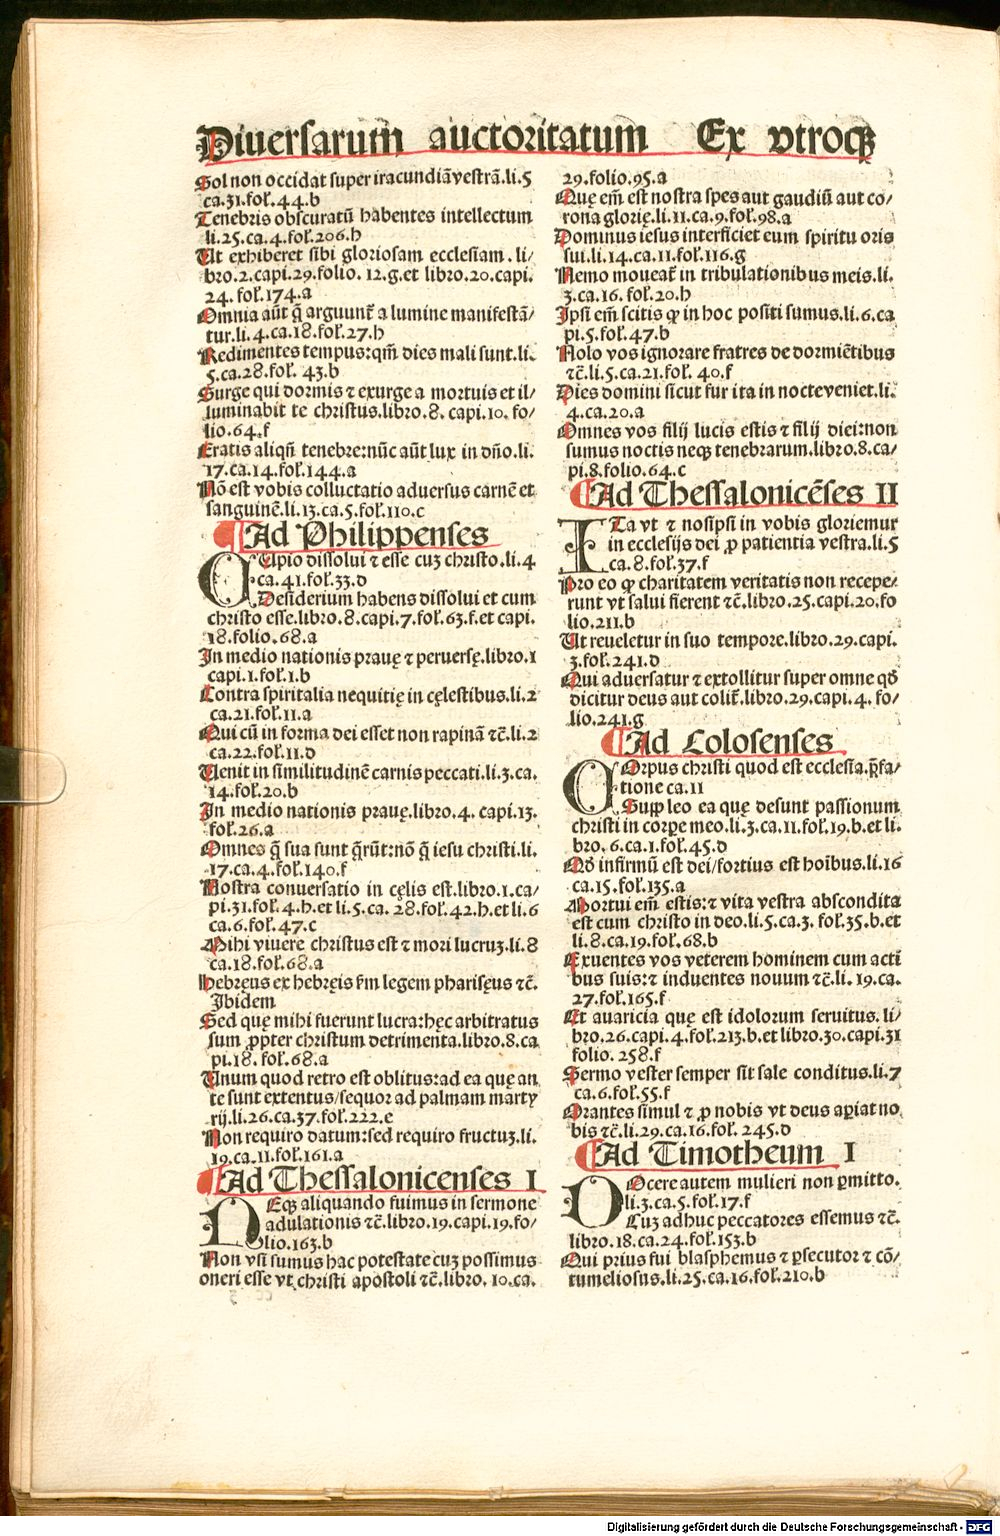 Diuersarum auctoritatum Ex vtroqꝫ
Sol non occidat super iracundiā vestrā.li.5
ca.31.foł.44.b
Tenebris obscuratū habentes intellectum
li.25.ca.4.foł.206.h
Ut exhiberet sibi gloriosam ecclesiam.li/
bro.2.capi.29.folio.12.g.et libro.20.capi.
24.foł.174.a
Omnia aūt q̄ arguunt᷑ a lumine manifestā/
tur.li.4.ca.18.foł.27.h
Redimentes tempus:qm̄ dies mali sunt.li.
5.ca.28.foł.43.b
Surge qui dormis ⁊ exurge a mortuis et il/
luminabit te christus.libro.8.capi.10.fo/
lio.64.f
Eratis aliqn̄ tenebre:nūc aūt lux in dño.li.
17.ca.14.foł.144.a
Nō est vobis colluctatio aduersus carnē et
sanguinē.li.13.ca.5.foł.110.c
Ad Philippenses
CUpio dissolui ⁊ esse cuꝫ christo.li.4
ca.41.foł.33.d
Desiderium habens dissolui et cum
christo esse.libro.8.capi.7.foł.63.f.et capi.
18.folio.68.a
In medio nationis prauę ⁊ peruersę.libro.1
capi.1.foł.1.b
Contra spiritalia nequitię in cęlestibus.li.2
ca.21.foł.11.a
Qui cū in forma dei esset non rapinā ⁊c̄.li.2
ca.22.foł.11.d
Uenit in similitudinē carnis peccati.li.3.ca.
14.foł.20.b
In medio nationis prauę.libro.4.capi.13.
foł.26.a
Omnes q̄ sua sunt q̄rūt:nō q̄ iesu christi.li.
17.ca.4.foł.140.f
Nostra conuersatio in cęlis est.libro.1.ca/
pi.31.foł.4.h.et li.5.ca.28.foł.42.h.et li.6
ca.6.foł.47.c
Mihi viuere christus est ⁊ mori lucruꝫ.li.8
ca.18.foł.68.a
Hebręus ex hebręis ẜm legem pharisęus ⁊c̄.
Ibidem
Sed quę mihi fuerunt lucra:hęc arbitratus
sum ꝓpter christum detrimenta.libro.8.ca
pi.18.foł.68.a
Unum quod retro est oblitus:ad ea quę an
te sunt extentus/sequor ad palmam marty
rij.li.26.ca.37.foł.222.e
Non requiro datum:sed requiro fructuꝫ.li.
19.ca.11.foł.161.a
Ad Thessalonicenses I
NEqꝫ aliquando fuimus in sermone
adulationis ⁊c̄.libro.19.capi.19.fo/
lio.163.b
Non vsi sumus hac potestate cuꝫ possimus
oneri esse vt christi apostoli ⁊c̄.libro.10.ca.
29.folio.95.a
Quę em̄ est nostra spes aut gaudiū aut co/
rona glorię.li.11.ca.9.foł.98.a
Dominus iesus interficiet eum spiritu oris
sui.li.14.ca.11.foł.116.g
Nemo moueat᷑ in tribulationibus meis.li.
3.ca.16.foł.20.h
Ipsi em̄ scitis ꝙ in hoc positi sumus.li.6.ca
pi.5.foł.47.b
Nolo vos ignorare fratres de dormiētibus
⁊c̄.li.5.ca.21.foł.40.f
Dies domini sicut fur ita in nocte veniet.li.
4.ca.20.a
Omnes vos filij lucis estis ⁊ filij diei:non
sumus noctis neqꝫ tenebrarum.libro.8.ca/
pi.8.folio.64.c
Ad Thessalonicēses II
ITa vt ⁊ nosipsi in vobis gloriemur
in ecclesijs dei ꝓ patientia vestra.li.5
ca.8.foł.37.f
Pro eo ꝙ charitatem veritatis non recepe/
runt vt salui fierent ⁊c̄.libro.25.capi.20.fo
lio.211.b
Ut reueletur in suo tempore.libro.29.capi.
3.foł.241.d
Qui aduersatur ⁊ extollitur super omne qd̄
dicitur deus aut colit᷑.libro.29.capi.4.fo/
lio.241.g
Ad Colosenses
COrpus christi quod est ecclesia.p̄fa/
tione ca.11
Supꝑleo ea quę desunt passionum
christi in corꝑe meo.li.3.ca.11.foł.19.b.et li.
bro.6.ca.1.foł.45.d
Qd̄ infirmū est dei/fortius est hoībus.li.16
ca.15.foł.135.a
Mortui em̄ estis:⁊ vita vestra abscondita
est cum christo in deo.li.5.ca.3.foł.35.b.et
li.8.ca.19.foł.68.b
Exuentes vos veterem hominem cum acti
bus suis:⁊ induentes nouum ⁊c̄.li.19.ca.
27.foł.165.f
Et auaricia quę est idolorum seruitus.li/
bro.26.capi.4.foł.213.b.et libro.30.capi.31
folio.258.f
Sermo vester semper sit sale conditus.li.7
ca.6.foł.55.f
Orantes simul ⁊ ꝓ nobis vt deus aꝑiat no
bis ⁊c̄.li.29.ca.16.foł.245.d
Ad Timotheum I
DOcere autem mulieri non ꝑmitto.
li.3.ca.5.foł.17.f
Cuꝫ adhuc peccatores essemus ⁊c̄.
libro.18.ca.24.foł.153.b
Qui prius fui blasphemus ⁊ ꝑsecutor ⁊ cō/
tumeliosus.li.25.ca.16.foł.210.b
Digitalisierung gefördert durch die Deutsche Forschungsgemeinschaft - DFG